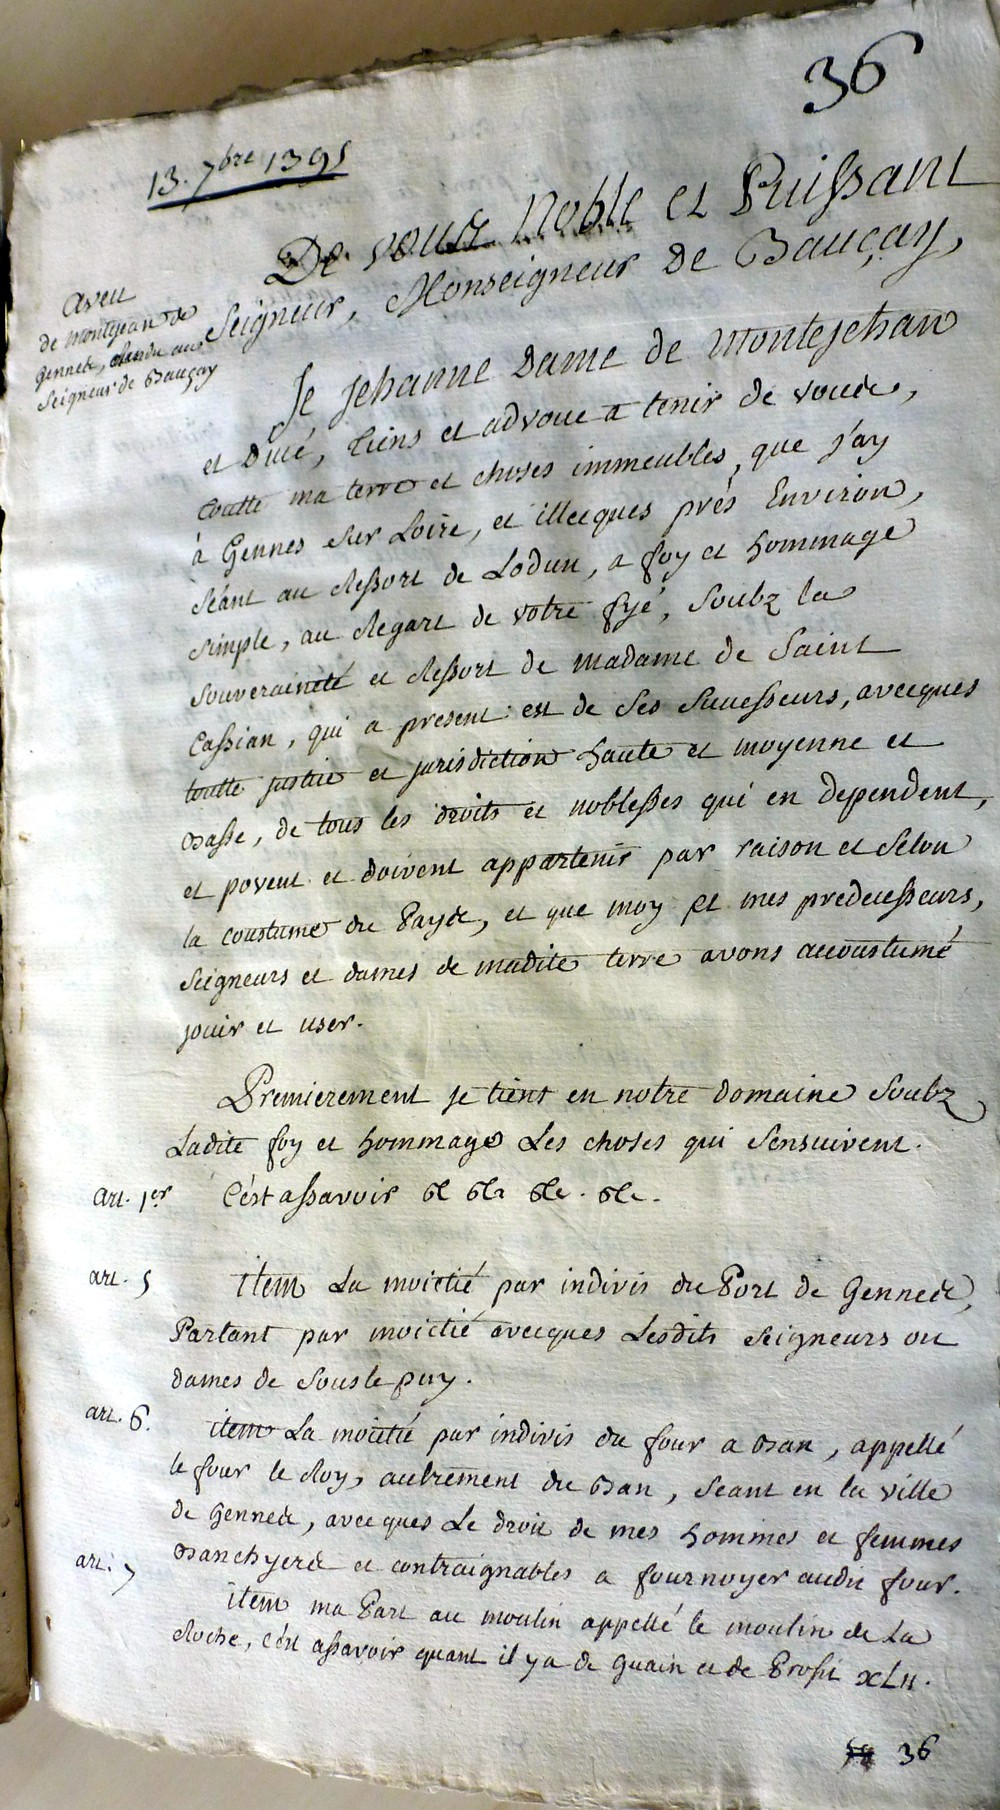 36
13. 7bre 1395
De vous Noble et Puissant
Seigneur, Monseigneur de Bauçay,
Aveu
de Montejean de
Gennes, rendu au
Seigneur de Bauçay
Je Jehanne Dame de Montejehan
et Dué, tiens et advoue a tenir de vous,
toutte ma terre et choses immeubles, que j'ay
à Gennes sur Loire, et illecques près Environ,
séant au Ressort de Lodun, a foy et hommage
simple, au Regart de votre fyé, soubz la
souveraineté et Ressort de madame de Saint
Cassian, qui a present est de ses successeurs, avecques
toutte justice et jurisdiction haute et moyenne et
basse, de tous les droits et noblesses qui en dependent,
et povent et doivent appartenir par raison et selon
la coustume du Pays, et que moy et mes predecesseurs,
Seigneurs et dames de madite terre avons accoustumé
jouir et user.
Premierement je tient en notre domaine soubz
Ladite foy et hommage Les choses qui sensuivent.
art. 1er C'est assavoir
art. 5 item La moictié par indivis du Port de Gennes,
Partant par moictié avecques Lesdits Seigneurs ou
dames de Sous le puy.
art. 6. item La moictié par indivis du four a ban, appellé
le four le Roy, autrement du ban, séant en la ville
de Gennes, avecques Le droit de mes hommes et femmes
banchyers et contraignables a fournoyer audit four.
art. 7
item ma Part au moulin appellé le moulin de La
Roche, c'est assavoir quant il y a de guain et de Profit xLs.
36